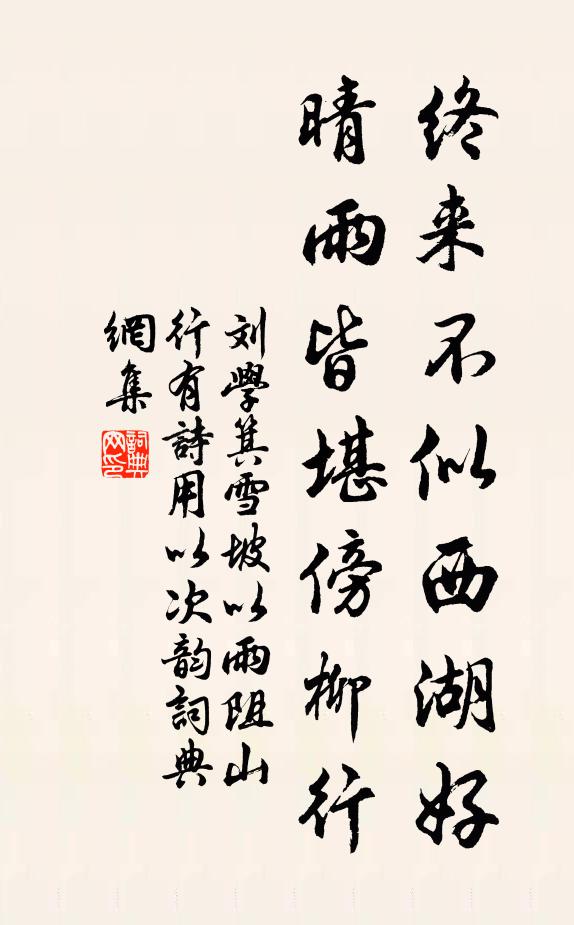 终来不似西湖好
晴雨皆堪傍柳行
刘學箕雪坡以雨阻山
行有詩用以次韵詞典
網集
詞典
网印